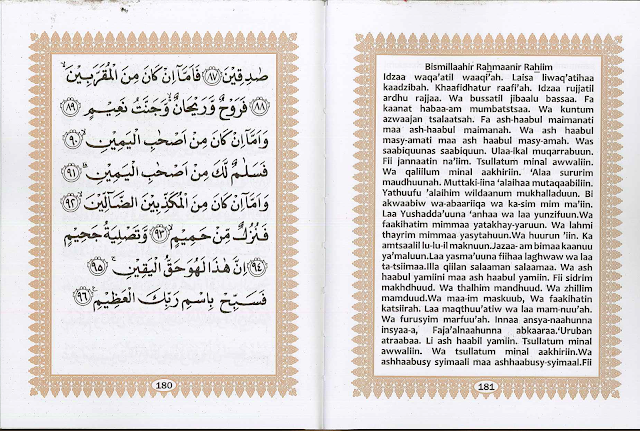 صٰدِقِيْنَ ﴿٨٧﴾ فَاَمَّآ اِنْ كَانَ مِنَ الْمُقَرَّبِيْنَۙ
﴿٨٨﴾ فَرَوْحٌ وَّرَيْحَانٌ ەۙ وَّجَنَّتُ نَعِيْمٍ ﴿٨٩﴾
وَاَمَّآ اِنْ كَانَ مِنْ اَصْحٰبِ الْيَمِيْنِۙ ﴿٩٠﴾
فَسَلٰمٌ لَّكَ مِنْ اَصْحٰبِ الْيَمِيْنِۗ ﴿٩١﴾
وَاَمَّآ اِنْ كَانَ مِنَ الْمُكَذِّبِيْنَ الضَّاۤلِّيْنَۙ ﴿٩٢﴾
فَنُزُلٌ مِّنْ حَمِيْمٍۙ ﴿٩٣﴾ وَّتَصْلِيَةُ جَحِيْمٍ
﴿٩٤﴾ اِنَّ هٰذَا لَهُوَ حَقُّ الْيَقِيْنِۚ ﴿٩٥﴾
فَسَبِّحْ بِاسْمِ رَبِّكَ الْعَظِيْمِ ﴿٩٦﴾
180
Bismillaahir Rahmaanir Rahiim
Idzaa waqa'atil waaqi'ah. Laisa liwaq'atihaa
kaadzibah. Khaafidhatur raafi'ah. Idzaa rujjatil
ardhu rajjaa. Wa bussatil jibaalu bassaa. Fa
kaanat habaa-am mumbatstsaa. Wa kuntum
azwaajan tsalaatsah. Fa ash-haabul maimanati
maa ash-haabul maimanah. Wa ash haabul
masy-amati maa ash-haabul masy-amah. Was
saabiquunas saabiquun. Ulaa-ikal muqarrabuun.
Fii jannaatin na'iim. Tsullatum minal awwaliin.
Wa qaliilum minal aakhiriin. 'Alaa sururim
maudhuunah. Muttaki-iina 'alaihaa mutaqaabiliin.
Yathuufu 'alaihim wildaanum mukhalladuun. Bi
akwaabiw wa-abaariiqa wa ka-sim mim ma'iin.
Laa Yushadda'uuna 'anhaa wa laa yunzifuun.Wa
faakihatim mimmaa yatakhay-yaruun. Wa lahmi
thayrim mimmaa yasytahuun.Wa huurun 'iin. Ka
amtsaalil lu-lu-il maknuun.Jazaa-am bimaa kaanuu
ya'maluun.Laa yasma'uuna fiihaa laghwaw wa laa
ta-tsiimaa.Illa qiilan salaaman salaamaa. Wa ash
haabul yamiini maa ash haabul yamiin. Fii sidrim
makhdhuud. Wa thalhim mandhuud. Wa zhillim
mamduud.Wa maa-im maskuub, Wa faakihatin
katsiirah. Laa maqthuu'atiw wa laa mam-nuu'ah.
Wa furusyim marfuu'ah. Innaa ansya-naahunna
insyaa-a, Faja'alnaahunna abkaaraa.'Uruban
atraabaa. Li ash haabil yamiin. Tsullatum minal
awwaliin. Wa tsullatum minal aakhiriin.Wa
ashhaabusy syimaali maa ashhaabusy-syimaal.Fii
181